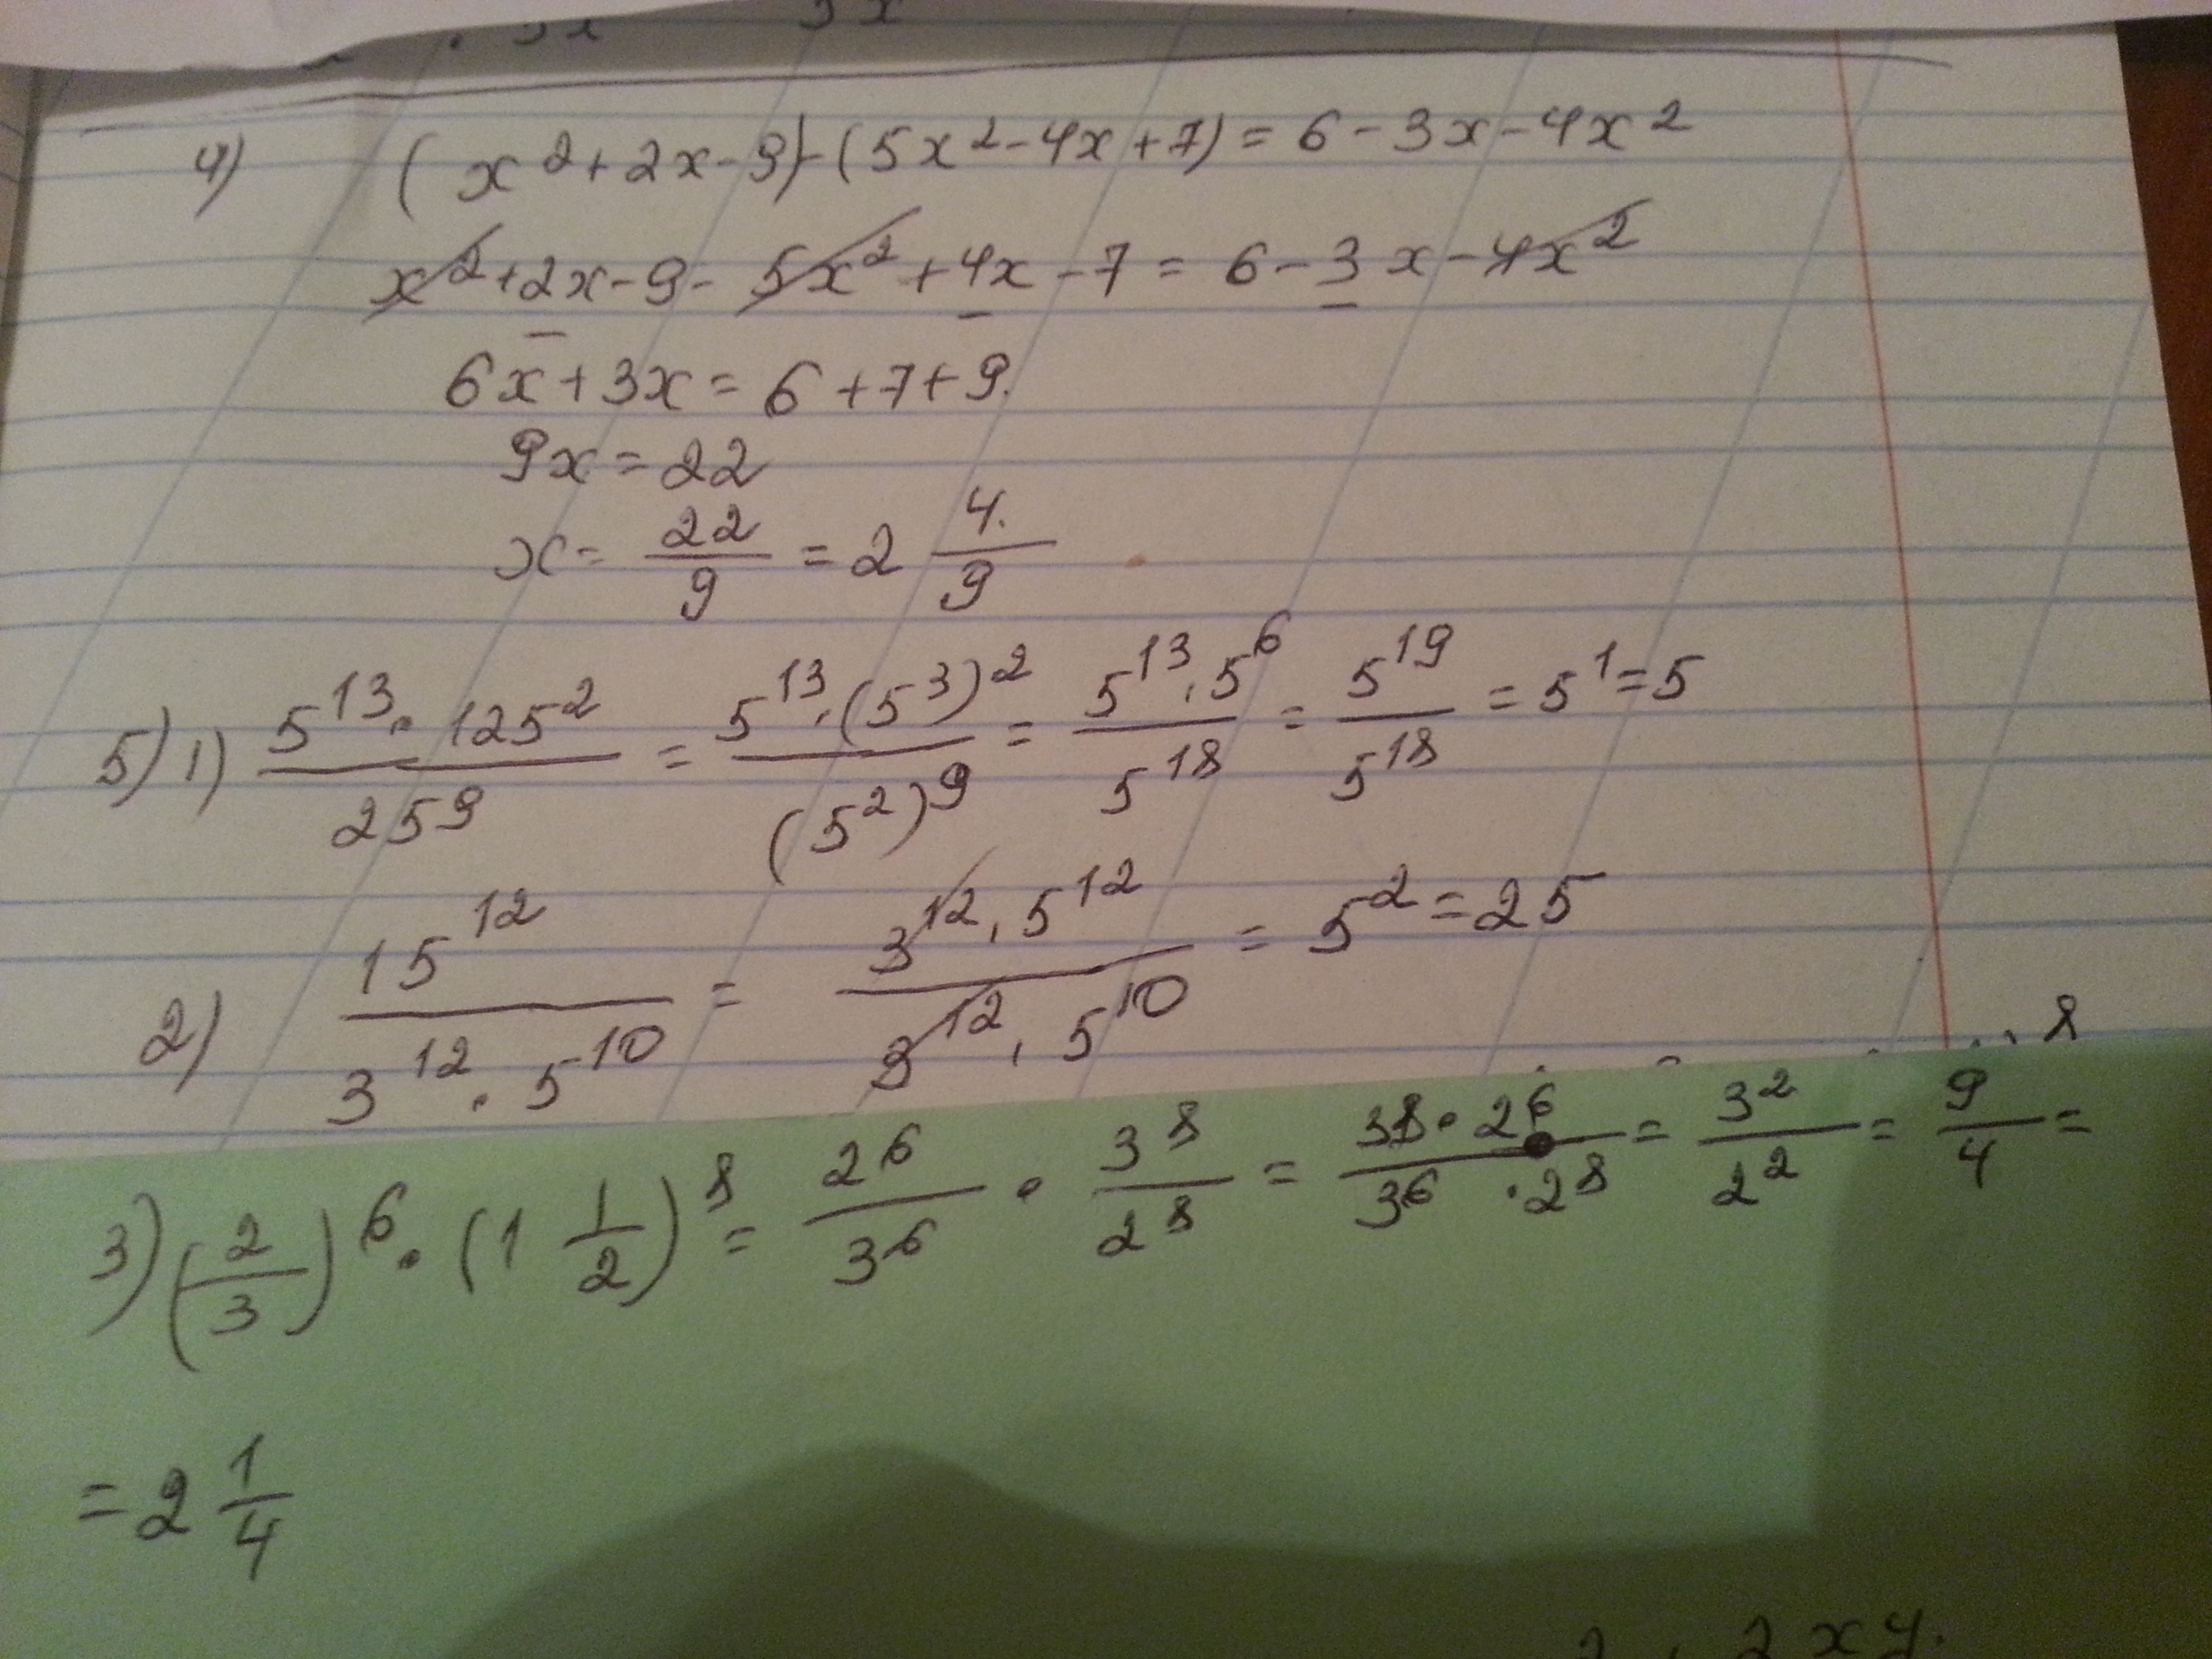 4) (x² + 2x - 9) - (5x² - 4x + 7) = 6 - 3x - 4x²
x² + 2x - 9 - 5x² + 4x - 7 = 6 - 3x - 4x²
6x + 3x = 6 + 7 + 9.
9x = 22
x = 22/9 = 2 4/9
5) 1) 5¹³ · 125² / 25⁹ = 5¹³ · (5³)² / (5²)⁹ = 5¹³ · 5⁶ / 5¹⁸ = 5¹⁹ / 5¹⁸ = 5¹ = 5
2) 15¹² / 3¹² · 5¹⁰ = 3¹² · 5¹² / 3¹² · 5¹⁰ = 5² = 25
3) (2/3)⁶ · (1 1/2)⁸ = 2⁶/3⁶ · 3⁸/2⁸ = 3⁸ · 2⁶ / 3⁶ · 2⁸ = 3²/2² = 9/4 =
= 2 1/4
2xy.